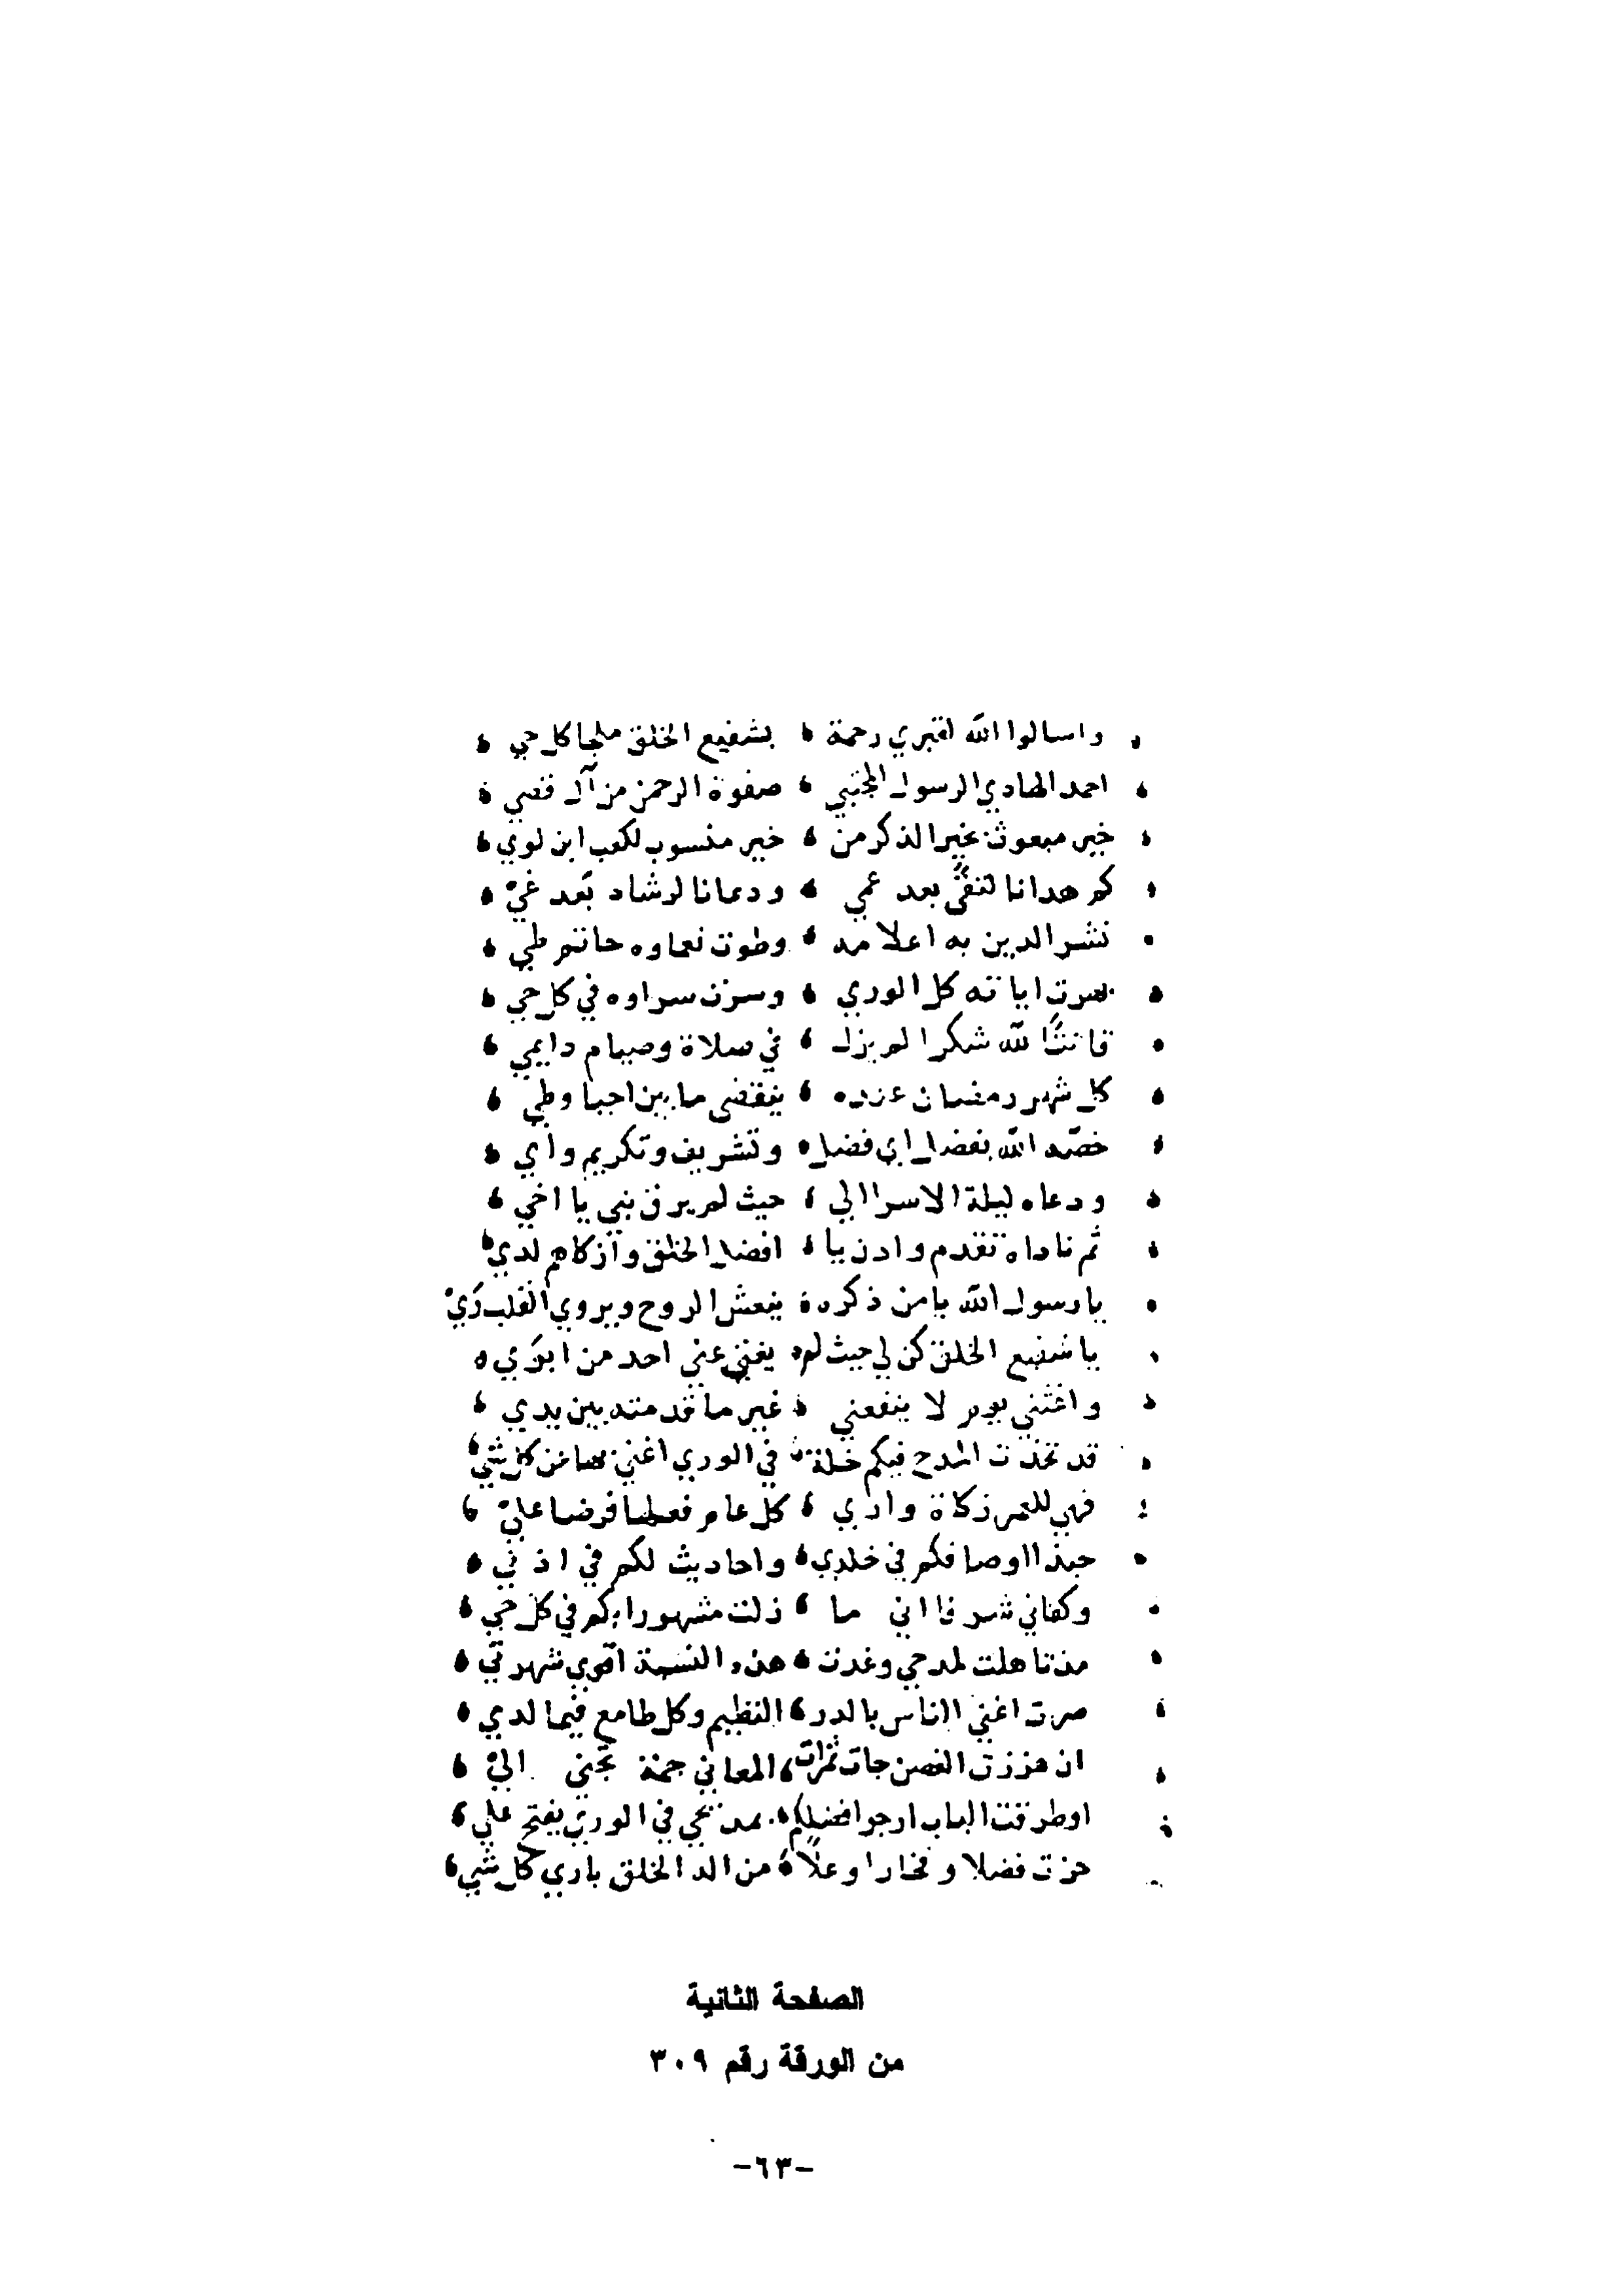 واسالوا الله لقبري رحمة ۵ بشفيع الخلق ملجا كل حي ۵
احمد الهادي الرسول المجتبي ۵ صفوة الرحمن من آل قصي ۵
خير مبعوث بخير الذكر من ۵ خير منسوب لكعب ابن لوي ۵
كم هدانا لتقى بعد عمي ۵ ودعانا لرشاد بعد غيّ ۵
نشر الدين به اعلامه ۵ وطوت نعماوه حاتم طي ۵
اياته كل الوري ۵ وسرت سراوه في كل حي ۵
قانتًا لله شكرا لم يزل ۵ في صلاة وصيام دايمي ۵
كل شهر رمضان عنده ۵ ينقضي ما بين احيا وطي ۵
خصّه الله بفضل اي فضل ۵ وتشريف وتكريم واي ۵
ودعاه ليلة الاسرا الي ۵ حيث لم يرق نبي يا اخي ۵
ثم ناداه تقدم وادن يا ۵ افضل الخلق وازكاهم لدي ۵
يا رسول الله يا من ذكره ۵ ينعش الروح ويروي القلب ريّ
يا شفيع الخلق كن لي حيث لم ۵ يغني عني احد من ابوي ۵
واغثني يوم لا ينفعني ۵ غير ما قدمته بين يدي ۵
قد تخذت المدح فيكم خلة ۵ في الوري اغني بها عن كل شي ۵
فهي للعمر زكاة وادي ۵ كل عام فعلها فرضا عليّ ۵
حبذا اوصافكم في خلدي ۵ واحاديث لكم في اذني ۵
وكفاني شرفا اني ما ۵ زلت مشهورا بكم في كل حي ۵
مذ تاهلت لمدحي وغدت ۵ هذه النسبة اقوي شهرتي ۵
صرت اغني الناس بالدر ۵ النظيم وكل طامع فيما لدي ۵
ان هززت الغصن جات ثمرات ۵ المعاني جمة تجني اليّ ۵
او طرقت الباب ارجوا فضلكم ۵ مدحي في الوري يفتح علي ۵
حزت فضلا وفخارا وعلًا ۵ من اله الخلق باري كل شي ۵
الصفحة الثانية
من الورقة رقم ٣٠٩
-٦٣-